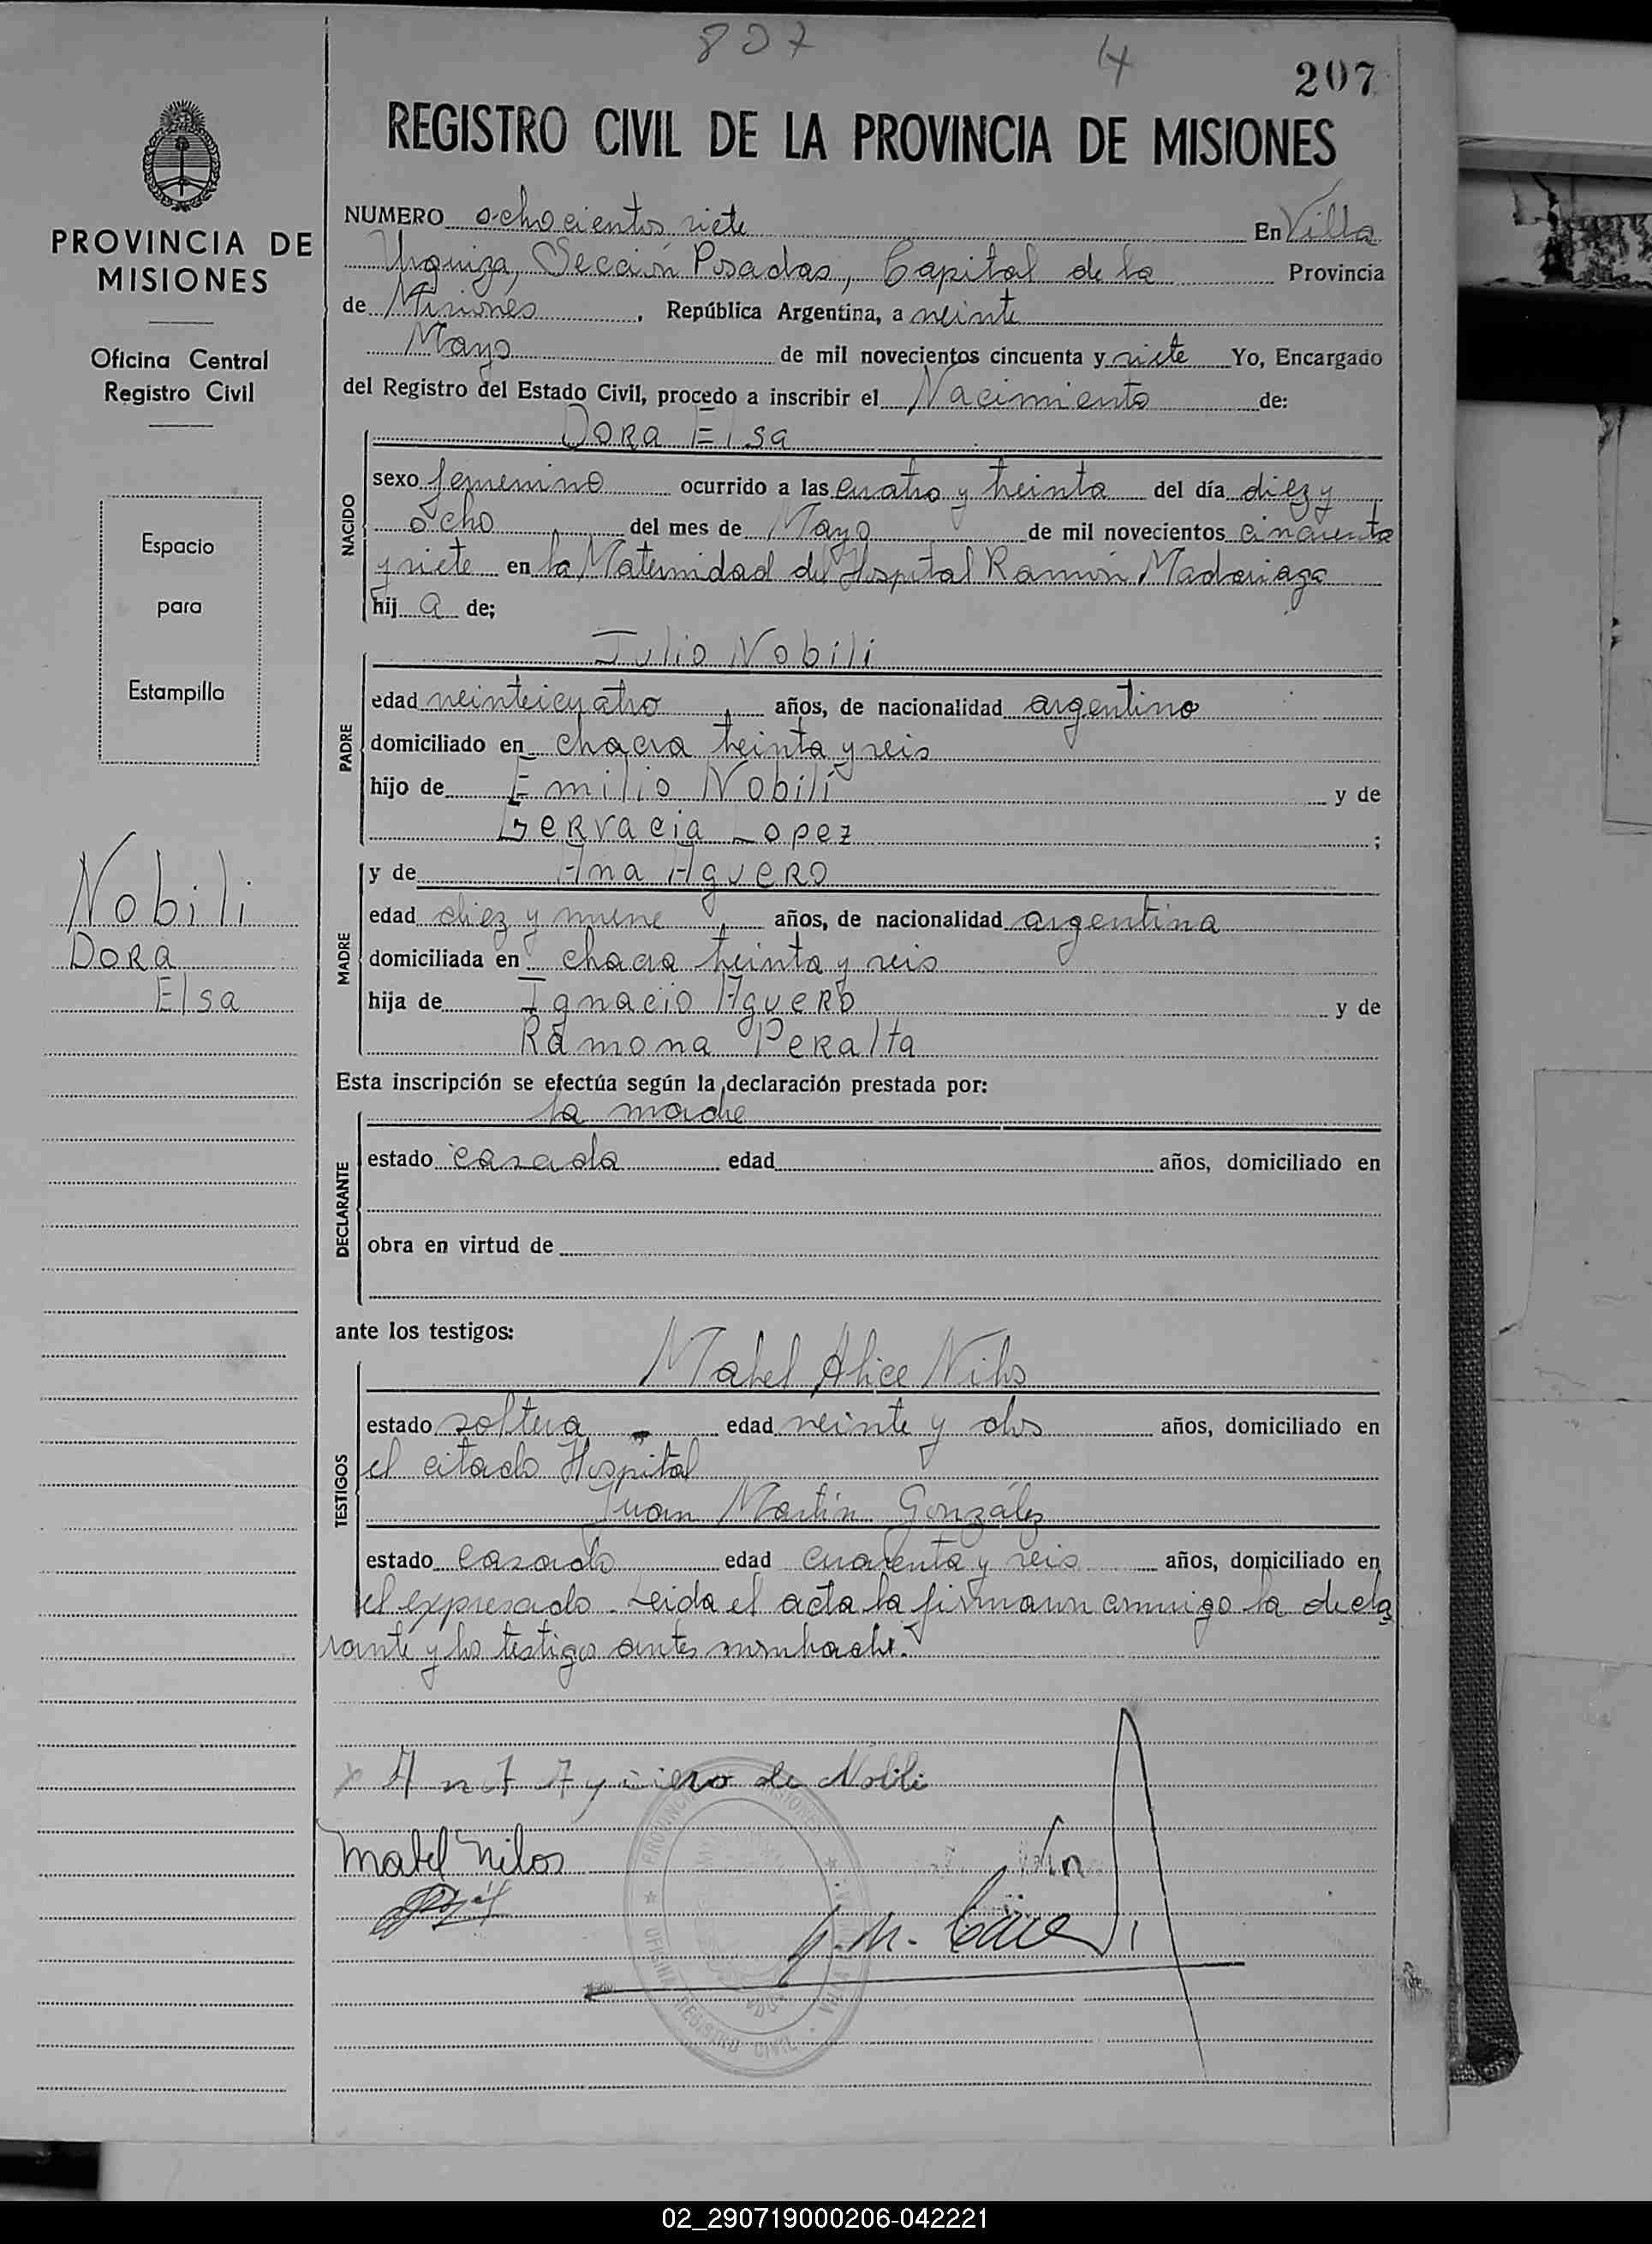 807 4 207
REGISTRO CIVIL DE LA PROVINCIA DE MISIONES
PROVINCIA DE
MISIONES
Oficina Central
Registro Civil
Espacio
para
Estampilla
Nobili
Dora
Elsa
NUMERO ochocientos siete En Villa
Urquiza, Sección Posadas, Capital de la Provincia
de Misiones, República Argentina, a veinte
Mayo de mil novecientos cincuenta y siete Yo, Encargado
del Registro del Estado Civil, procedo a inscribir el Nacimiento de:
NACIDO
Dora Elsa
sexo femenino ocurrido a las cuatro y treinta del día diez y
ocho del mes de Mayo de mil novecientos cincuenta
y siete en la Maternidad del Hospital Ramón Madariaga
hij a de;
PADRE
Julio Nobili
edad veinteicuatro años, de nacionalidad argentino
domiciliado en chacra treinta y seis
hijo de Emilio Nobili y de
Gervacia Lopez ;
MADRE
y de Ana Aguero
edad diez y nueve años, de nacionalidad argentina
domiciliada en chacra treinta y seis
hija de Ignacio Aguero y de
Ramona Peralta
Esta inscripción se efectúa según la declaración prestada por:
DECLARANTE
la madre
estado casada edad años, domiciliado en
obra en virtud de
ante los testigos:
TESTIGOS
Mabel Alice Nilos
estado soltera edad veinte y dos años, domiciliado en
el citado Hospital
Juan Martín González
estado casado edad cuarenta y seis años, domiciliado en
el expresado. Leida el acta la firmaron conmigo la decla
rante y los testigos antes nombrados.
x Ana Aguero de Nobili
Mabel Nilos
PROVINCIA MISIONES
OFICINA REGISTRO CIVIL
02_290719000206-042221